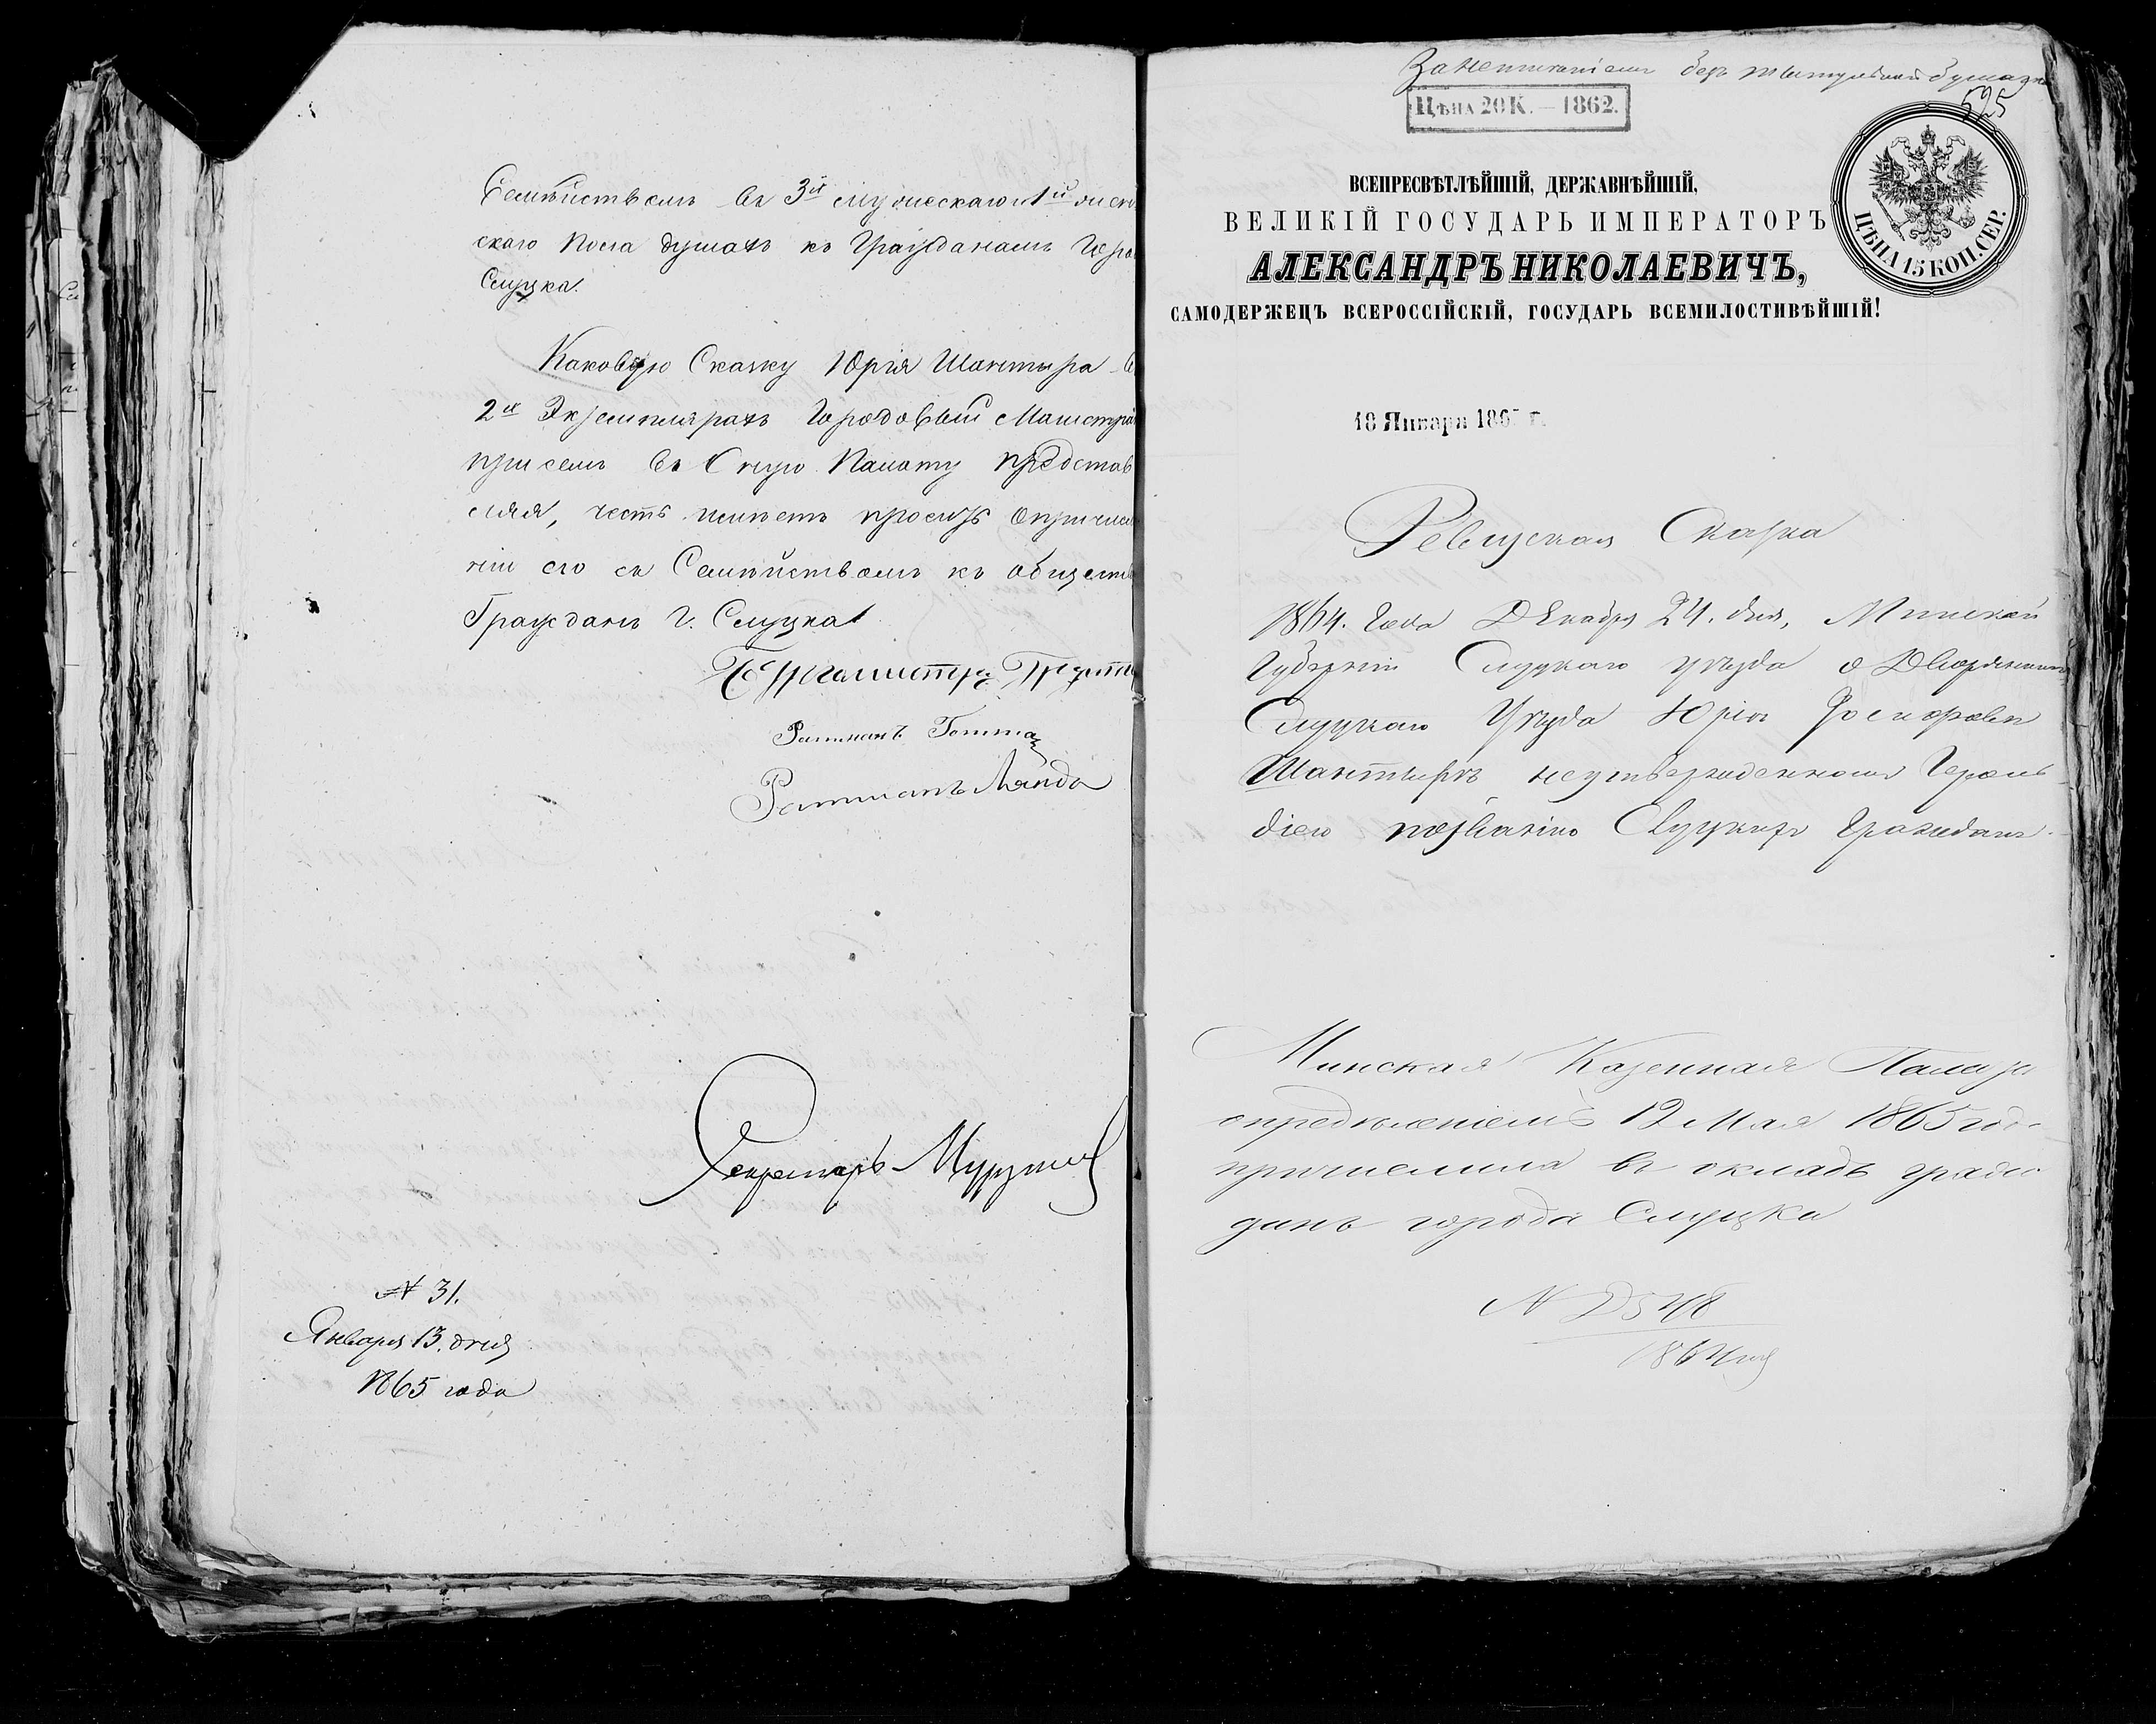 Семѣйствомъ въ 3й мужескаго и 1й женс
скаго пола душахъ къ Гражданамъ Горо
Слуцка.
Каковую Сказку Юрія Шантыра въ
2х Экземплярахъ Городовый Магистра
при семъ въ Оную Палату представ
ляя, честь имѣетъ просить о причисле
ніи его съ Семѣйствомъ къ обществ
Гражданъ г. Слуцка
Бургомистръ
Ратманъ
Ратманъ Лянда
Секретарь
№ 31.
Января 13. дня
1865 года
За неимѣніемъ бумаги
525
Цѣна 20 К. — 1862.
ЦѢНА 15 КОП. СЕР.
ВСЕПРЕСВѢТЛѢЙШІЙ, ДЕРЖАВНѢЙШІЙ,
ВЕЛИКІЙ ГОСУДАРЬ ИМПЕРАТОРЪ
АЛЕКСАНДРЪ НИКОЛАЕВИЧЪ,
САМОДЕРЖЕЦЪ ВСЕРОССІЙСКІЙ, ГОСУДАРЬ ВСЕМИЛОСТИВѢЙШІЙ!
18 Января 186 г.
Ревизская Сказка
1864. Года Декабря 24. дня, Минской
Губерніи Слуцкаго уѣзда о Дворянинѣ
Слуцкаго Уѣзда Юріѣ
Шантырѣ неутвержденномъ Героль
діею по званію Слуцкихъ Гражданъ.
Минская Казенная Палата
опредѣленіемъ 12 Мая 1865 года
причислила въ окладъ граж
данъ города Слуцка